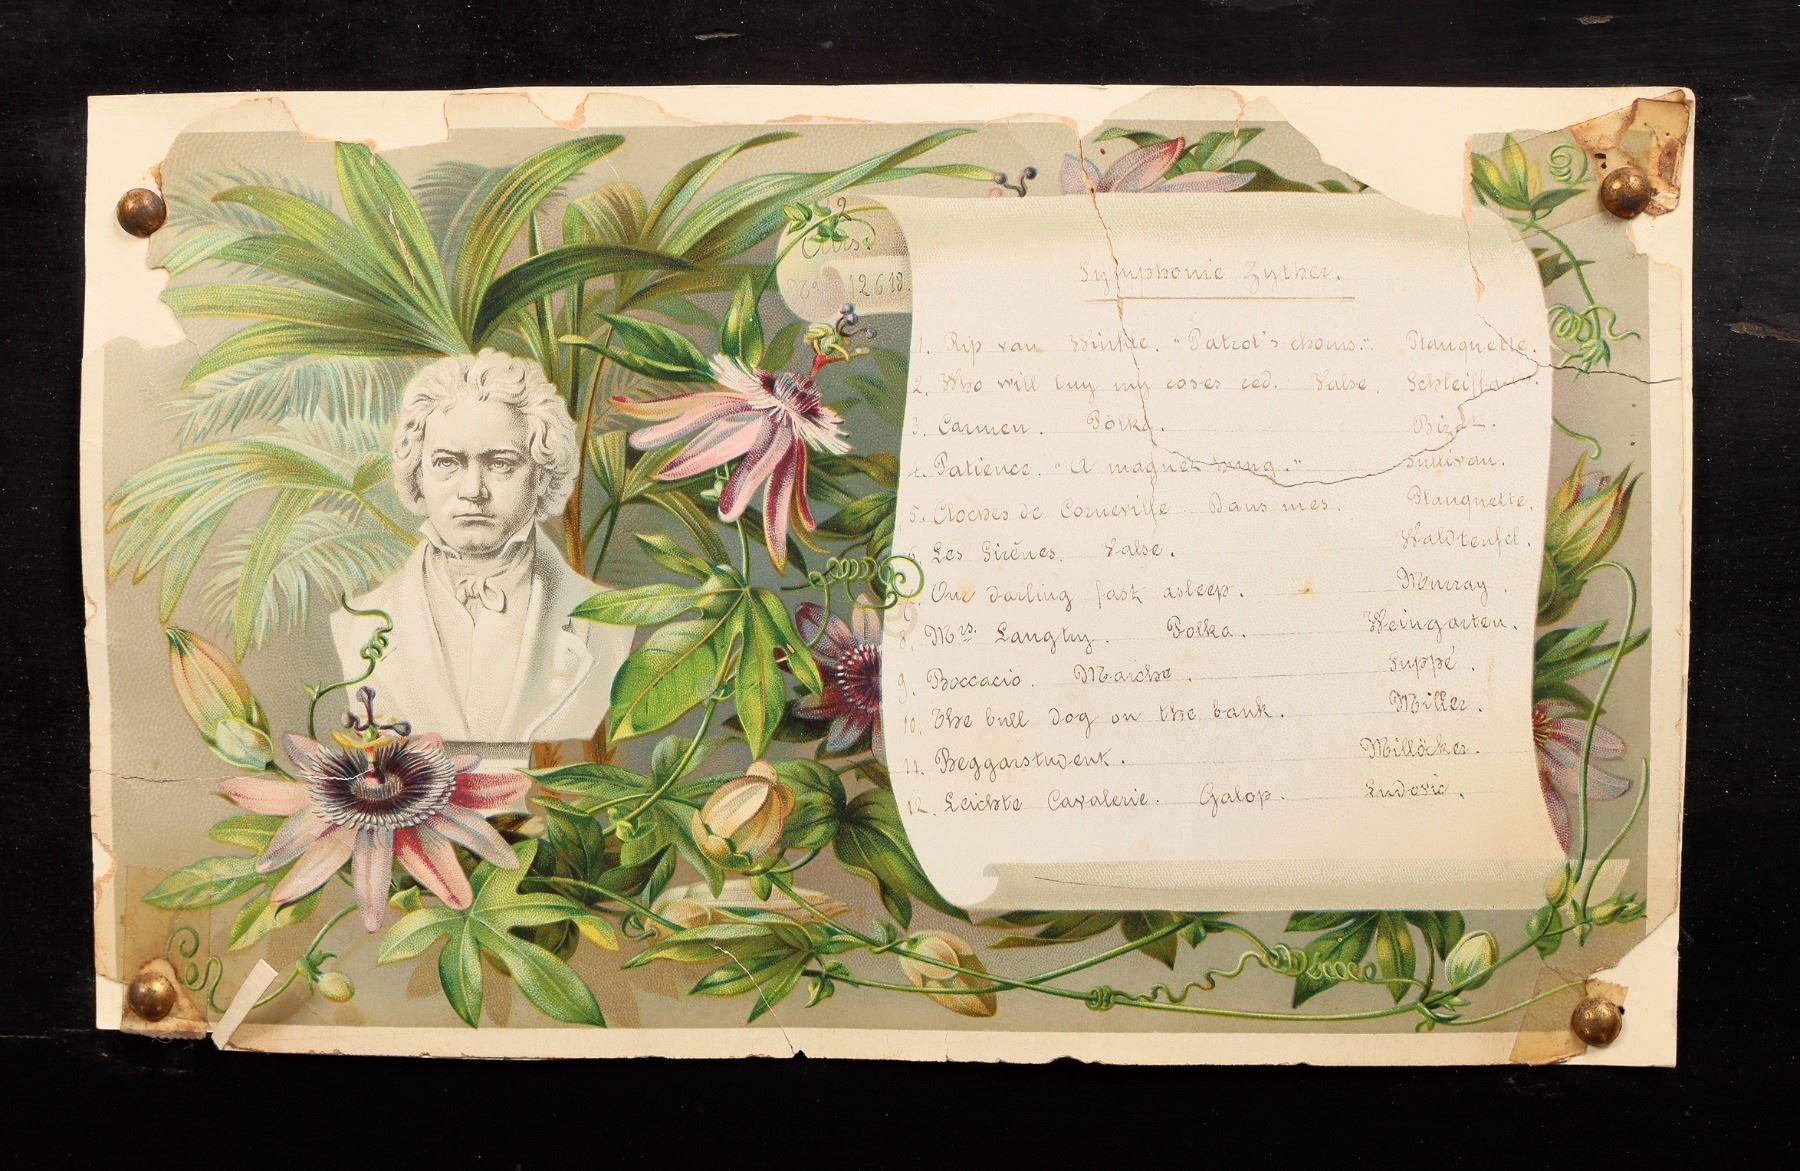 12
Airs.
No. 12618.
Symphonie Zyther.
1. Rip van Winkle. "Patrol's chorus." Planquette.
2. Who will buy my roses red. Valse.
3. Carmen. Polka. Bizet.
4. Patience. "A magnet hung." Sullivan.
5. Cloches de Corneville. Dans mes. Planquette.
6. Les Sirènes. Valse. Waldteufel.
7. Our darling fast asleep. Murray.
8. Mrs. Langtry. Polka. Weingarten.
9. Boccacio. Marche. Suppé.
10. The bull dog on the bank. Miller.
11. Beggarstudent. Millöcker.
12. Leichte Cavalerie. Galop. Ludovic.